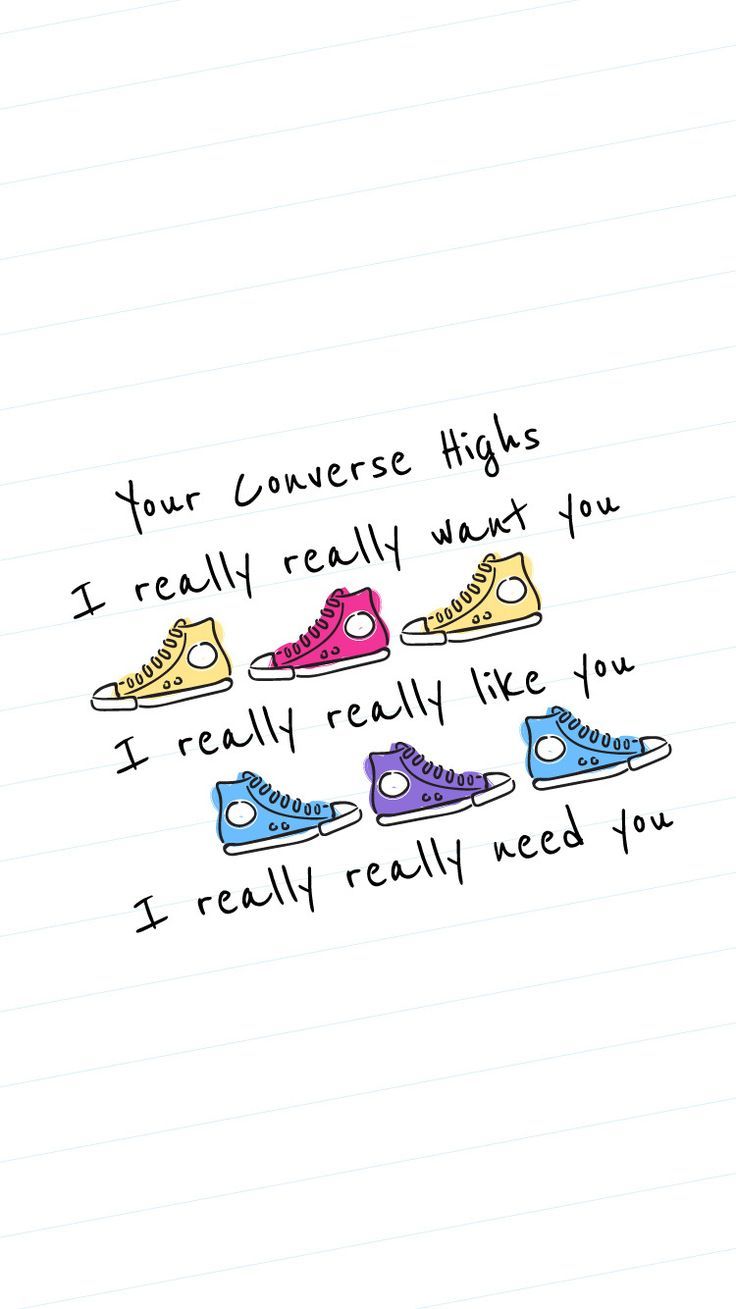 Your Converse Highs
I really really want you
I really really like you
I really really need you